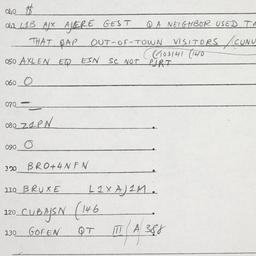 040 #
041 L1B AJX AJERE GEST QA NEIGHBOR USED TO
THAT QAP OUT-OF-TOWN VISITORS / CUNU
050 AXLEN EQ EIN SC NOT PJRT
060 O
070 —
080 Z1PN
090 O
BRO+4NFN
110 BRUXE L1XAJ1M
120 CUBAJSN (146
130 GOFEN QT III / A